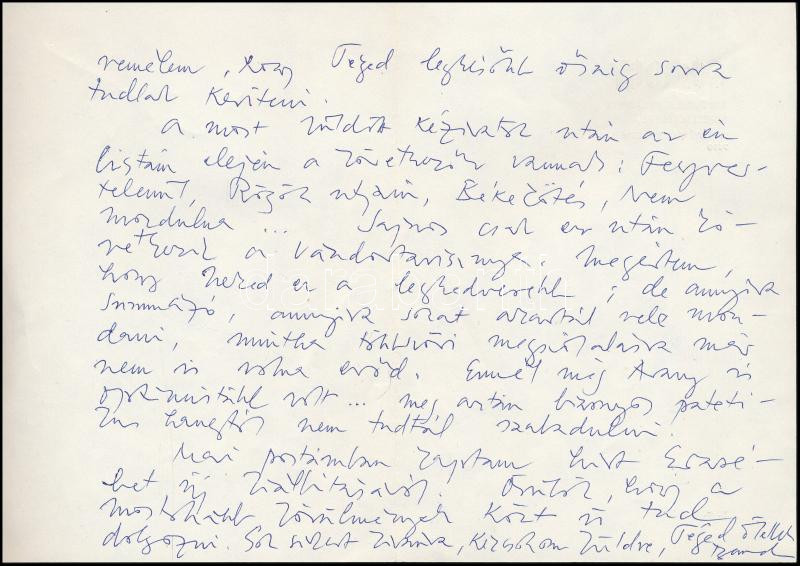 remélem, hogy Téged legkésőbb őszig sorra
tudlak keríteni.
A most küldött kéziratok után az én
listám elején a következők vannak: Fegyver-
telenül, Rögök útján, Békekötés, Nem
mozdulna ... Sajnos csak ez után kö-
vetkezik a Vándor Megértem,
hogy Neked ez a legkedvesebb; de annyira
summázó, annyira sokat akartál vele mon-
dani, mintha többszöri megszólalásra már
nem is volna erőd. Ennél még Arany is
optimistább volt... meg aztán bizonyos pateti-
kus hangtól nem tudtál szabadulni.
Mai postámban kaptam hírt Erzsé-
bet új kiállításáról. Örülök, hogy a
mostohább körülmények közt is tud
dolgozni. Sok sikert kívánva, kézcsókom küldve, Téged ölellek